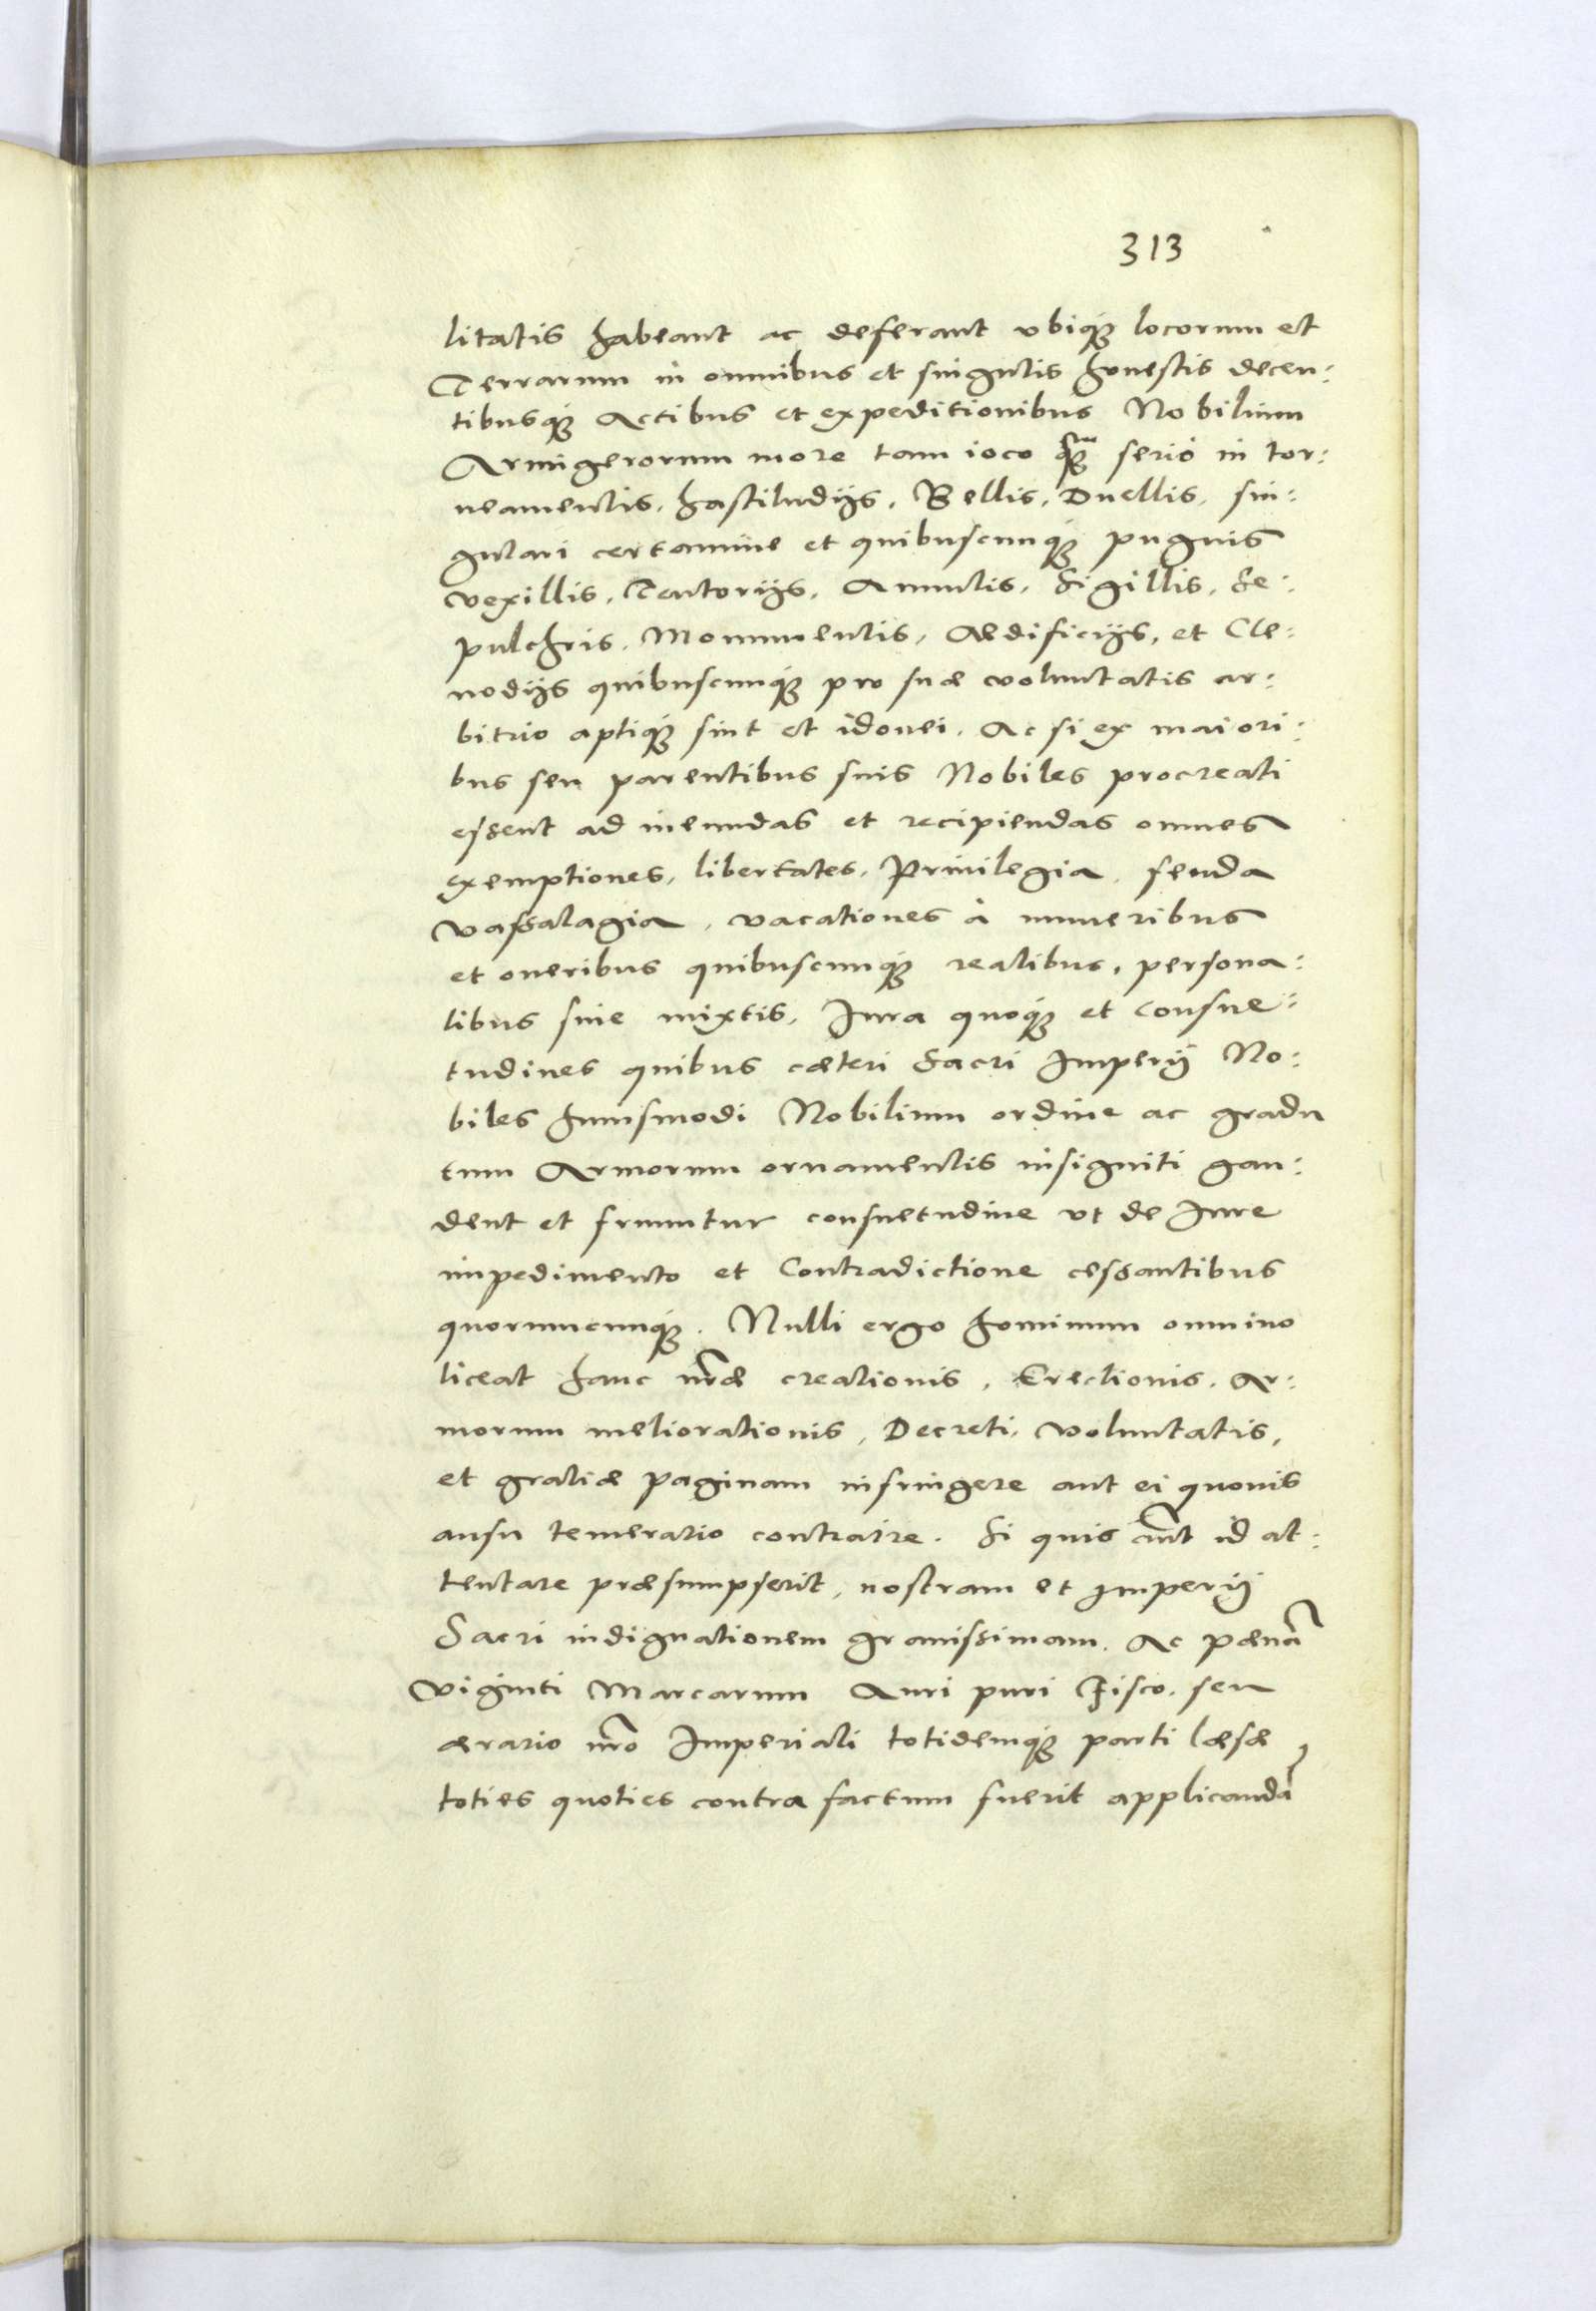 313
litatis habeant ac deferant ubiq; locorum et
Terrarum in omnibus et singulis honestis decen:
tibusq; Actibus et expeditionibus Nobilium
Armigerorum more tam ioco quam serio in tor:
neamentis, hastiludijs, Bellis, Duellis, sin:
gulari certamine et quibuscunq; pugnis
vexillis, Tentorijs, Annulis, Sigillis, Se:
pulchris, Monumentis, Aedificijs, et Cle:
nodijs quibuscunq; pro suæ voluntatis ar:
bitrio aptiq; sint et idonei. Ac si ex maiori:
bus seu parentibus suis Nobiles procreati
essent ad ineundas et recipiendas omnes
exemptiones, libertates, Privilegia, feuda
vassalagia, vacationes à muneribus
et oneribus quibuscunq; realibus, persona:
libus siue mixtis, Iura quoq; et consue:
tudines quibus cæteri Sacri Imperij No:
biles huiusmodi Nobilium ordine ac gradu
tum Armorum ornamentis insigniti gau:
dent et fruuntur consuetudine ut de Iure
impedimento et Contradictione cessantibus
quorumcunq;. Nulli ergo hominum omnino
liceat hanc nræ creationis, Erectionis, Ar:
morum meliorationis, Decreti, voluntatis,
et gratiæ paginam infringere aut ei quouis
ausu temerario contraire. Si quis aut id at:
tentare præsumpserit, nostram et Imperij
Sacri indignationem grauissimam, Ac pœnã
viginti Marcarum Auri puri Fisco, seu
ærario nro Imperiali totidemq; parti læsæ
toties quoties contra factum fuerit applicandã